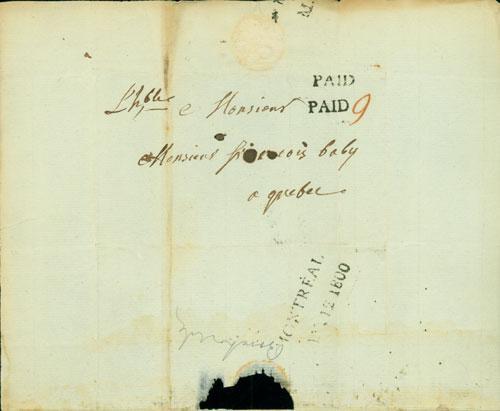 PAID
PAID 9
L'hble Monsieur
Monsieur françois baby
a quebec
MONTREAL
12 1800